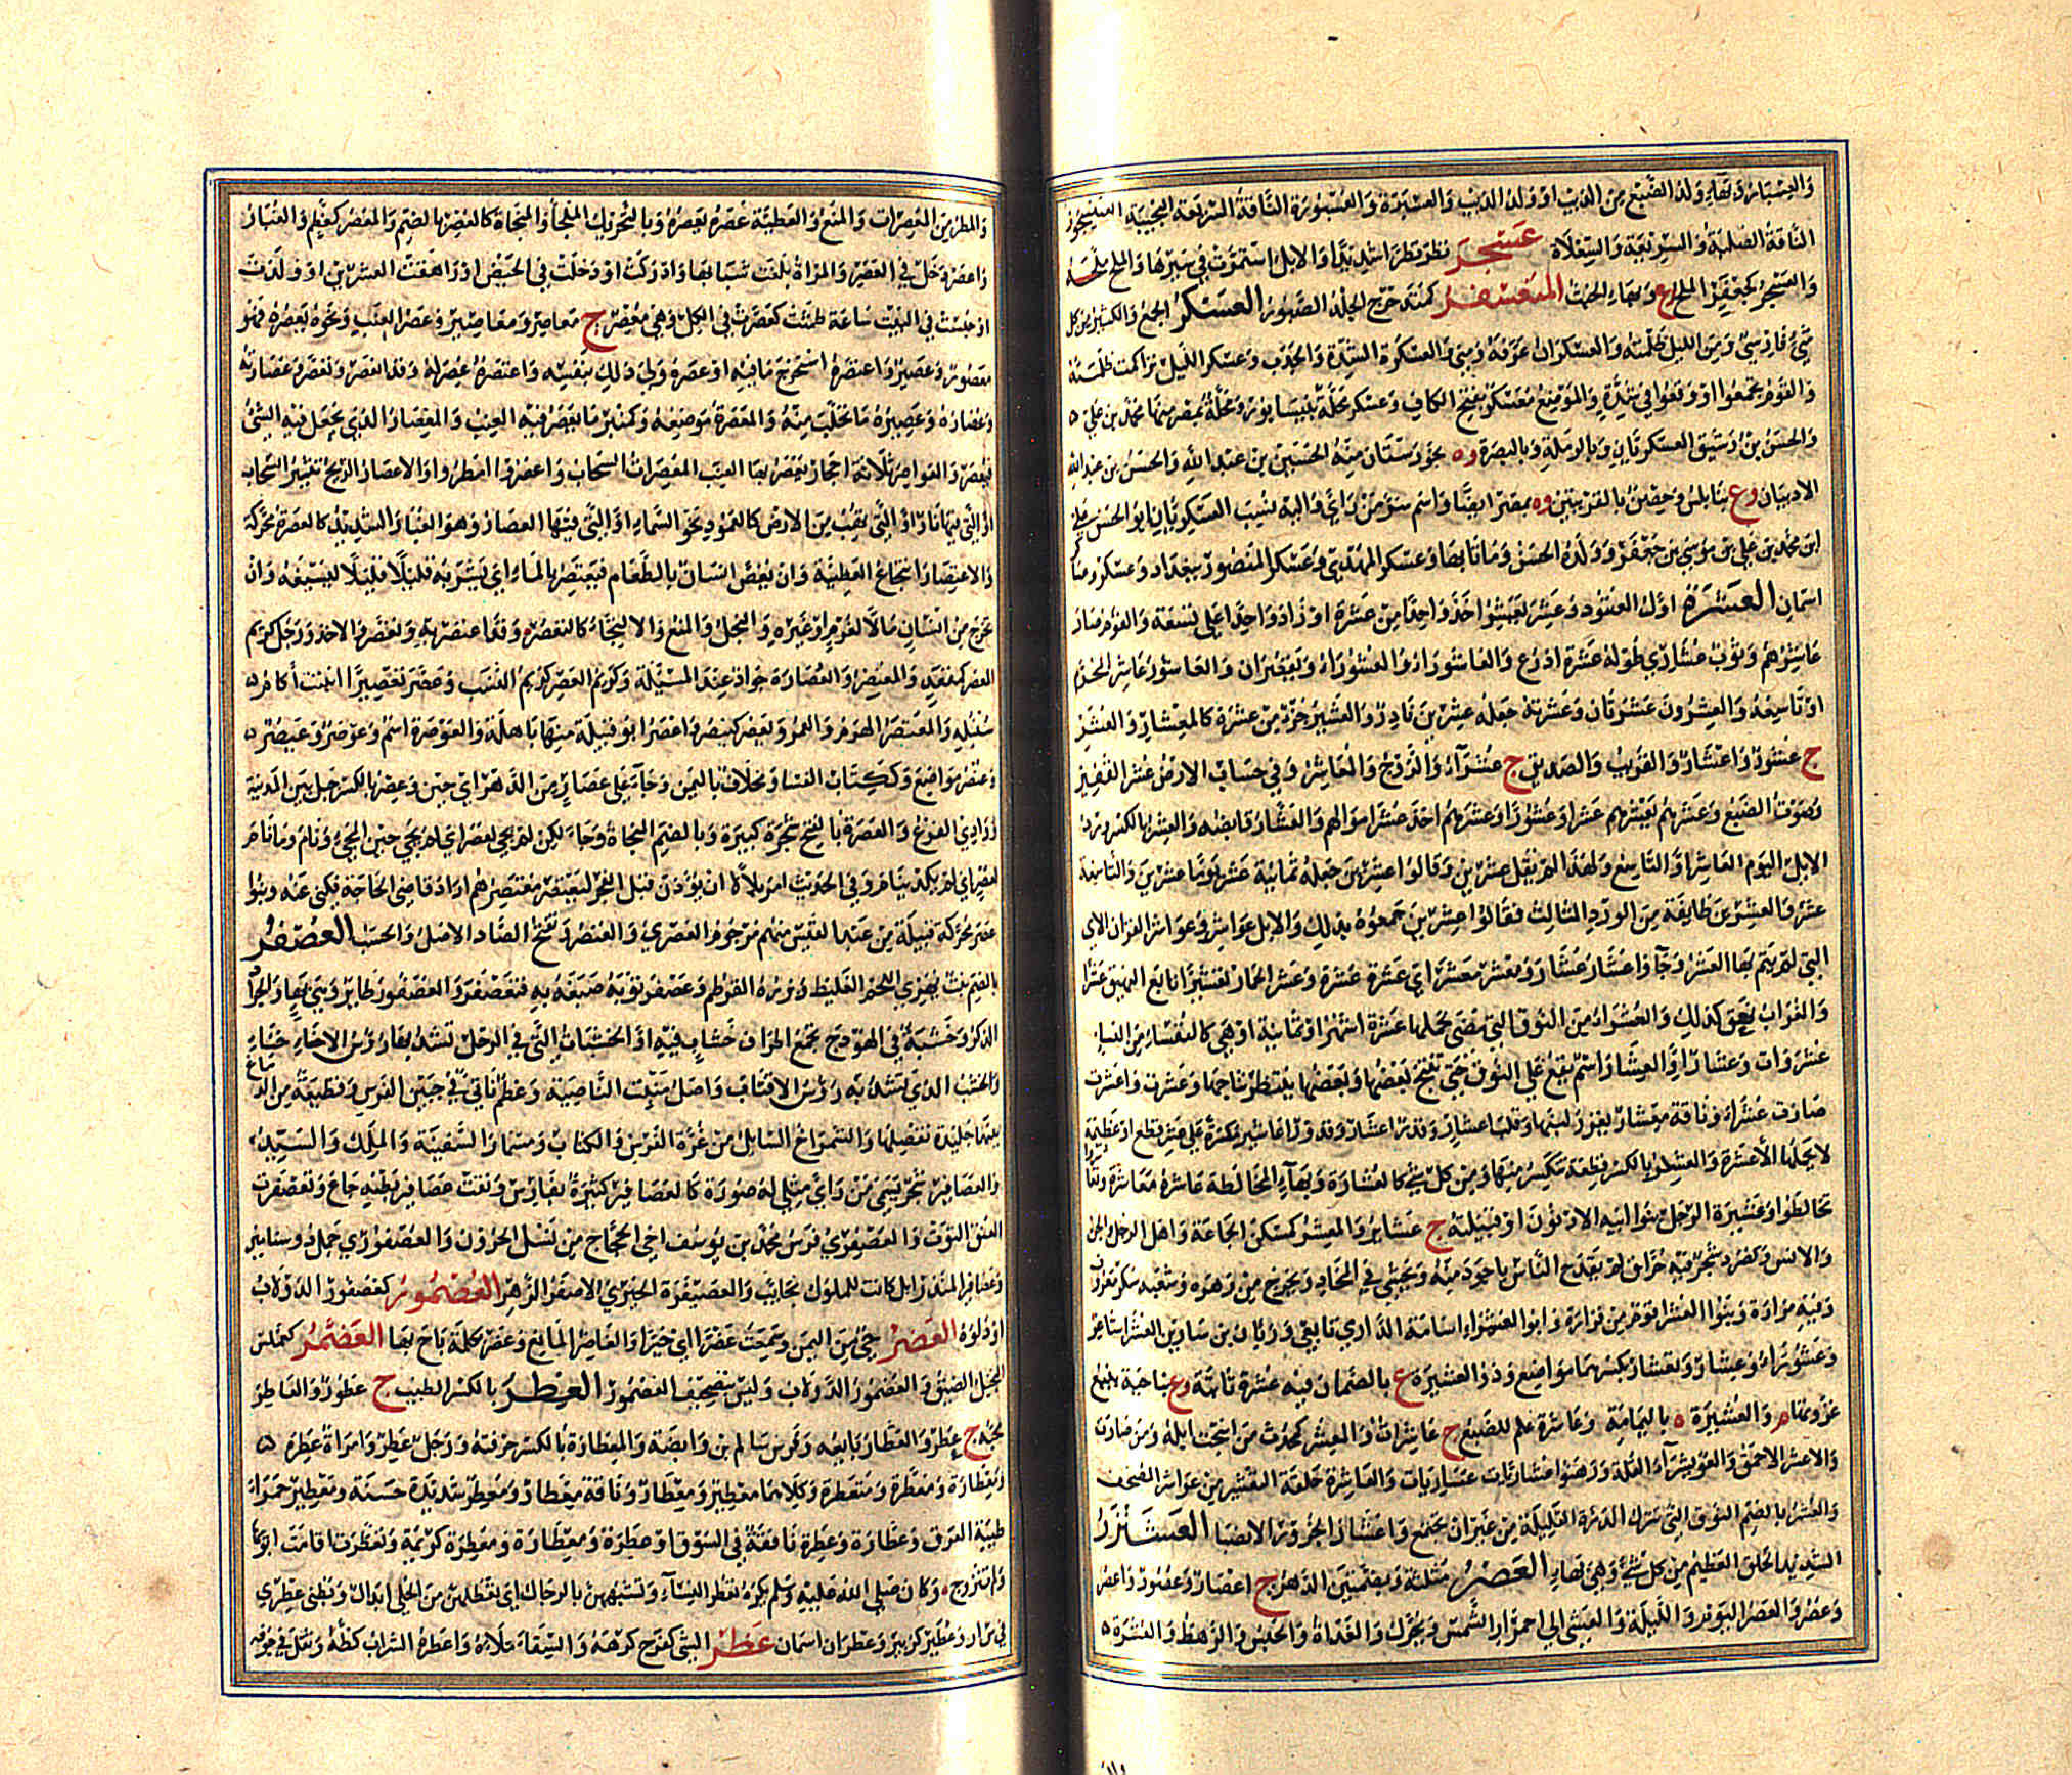 والعسبار وبهاء ولد الضبع من الذئب او ولد الذئب والعسبرة والعسبورة الناقة السريعة النجيبة العيسجور
الناقة الصلبة والسريعة والسعلاة عسجر نظر نظرا شديدا والابل استمرت في سيرها والملح ملحه
والعسجر كجعفر الملح ع وبهاء الخبث المتعسفر كمتدحرج الجلد الصبور العسكر الجمع والكثير من كل
شيء فارسي ومن الليل ظلمته والعسكران عرفة ومنى والعسكرة الشدة والجدب وعسكر الليل تراكمت ظلمته
والقوم تجمعوا او وقعوا في شدة والموضع معسكر بفتح الكاف وعسكر محلة بنيسابور ومحلة بمصر منها محمد بن علي
والحسن بن رشيق العسكريان وبالرملة وبالبصرة و ه بخوزستان منه الحسين بن عبد الله والحسن بن عبد الله
الاديبان و ع بنابلس وحصن بالقريتين و ه بمصر ايضا واسم سر من راى واليه نسب العسكريان ابو الحسن علي
ابن محمد بن علي بن موسى بن جعفر وولده الحسن وماتا بها وعسكر المهدي وعسكر المنصور ببغداد وعسكر ومساكر
اسمان العشرة اول العقود وعشر يعشر اخذ واحدا من عشرة او زاد واحدا على تسعة والقوم صار
عاشرهم وثوب عشاري طوله عشرة اذرع والعاشوراء والعشوراء ويقصران والعاشور عاشر المحرم
او تاسعه والعشرون عشرتان وعشرنه جعله عشرين نادر والعشير جزء من عشرة كالمعشار والعشر
ج عشور واعشار والقريب والصديق ج عشراء والزوج والمعاشر وفي حساب الارض عشر القفيز
وصوت الضبع وعشرهم يعشرهم عشرا وعشورا وعشرهم اخذ عشر اموالهم والعشار قابضه والعشر بالكسر ورد
الابل اليوم العاشر او التاسع ولهذا لم يقل عشرين وقالوا عشرين جعلوا ثمانية عشر يوما عشرين والتاسعة
عشر والعشرين طائفة من الورد الثالث فقالوا عشرين جمعوه بذلك والابل عواشر وعواشر القران الاي
التي يتم بها العشر وجاء اعشار عشار ومعشر معشر اي عشرة عشرة وعشر الحمار تعشيرا تابع النهيق عشرا
والغراب نعق كذلك والعشراء من النوق التي مضى لحملها عشرة اشهر او ثمانية او هي كالنفساء من النساء
عشراوات وعشار او العشار اسم يقع على النوق حتى ينتج بعضها وبعضها ينتظر نتاجها وعشرت واعشرت
صارت عشراء وناقة معشار يغزر لبنها وقلب اعشار وقدر اعشار وقدور اعاشير مكسرة على عشر قطع او عظيمة
لا يحملها الا عشرة والعشر بالكسر قطعة تنكسر منها ومن كل شيء كالعشارة وبهاء المخالطة عاشره معاشرة وتعاشروا
تخالطوا وعشيرة الرجل بنو ابيه الادنون او قبيلته ج عشائر والمعشر كمسكن الجماعة واهل الرجل والجن
والانس وكصرد شجر فيه حراق لم يقتدح الناس باجود منه ويحشى في المخاد ويخرج من زهره وشعبه سكر معروف
وفيه مرارة وبنو العشراء قوم من فزارة وابو العشراء اسامة الدارمي تابعي وزبان بن سيار بن العشراء شاعر
وعشوراء وعشار وتعشار بكسرهما مواضع وذو العشيرة ع بالصمان فيه عشرة نابتة و ع بناحية ينبع
غزوتها م والعشيرة ه باليمامة وعاشرة علم للضبع ج عاشرات والمعشر كمحدث من انتجت ابله ومن صارت
والاعشر الاحمق والعويشراء القلة وذهبوا عشاريات عساريات والعاشرة حلقة التعشير من عواشر المصحف
والعشر بالضم النوق التي تنزل الدرة القليلة من غير ان تجتمع واعشار الجزور الانصباء العشنزر
الشديد الخلق العظيم من كل شيء وهي بهاء العصر مثلثة وبضمتين الدهر ج اعصار وعصور واعصر
وعصر والعصر اليوم والليلة والعشي الى احمرار الشمس ويحرك والغداة والحبس والرهط والعشيرة
والمطر من المعصرات والمنع والعطية عصره يعصره وبالتحريك الملجا والمنجاة كالعصر بالضم والمعصر كمعظم والغبار
واعصر دخل في العصر والمراة بلغت شبابها وادركت او دخلت في الحيض او راهقت العشرين او ولدت
او حبست في البيت ساعة طمثت كعصرت في الكل وهي معصر ج معاصر ومعاصير وعصر العنب ونحوه يعصره فهو
معصور وعصير واعتصره استخرج ما فيه او عصره ولي ذلك بنفسه واعتصره عصر له وقد انعصر وتعصر وعصارته
وعصاره وعصيره ما تحلب منه والمعصرة موضعه وكمنبر ما يعصر فيه العنب والمعصار الذي يجعل فيه الشيء
فيعصر والعواصر ثلاثة احجار يعصر بها العنب والمعصرات السحاب واعصروا امطروا والاعصار الريح تثير السحاب
او التي فيها نار او التي تهب من الارض كالعمود نحو السماء او التي فيها العصار وهو الغبار الشديد كالعصرة محركة
والاعتصار انتجاع العطية وان يغص انسان بالطعام فيعتصر بالماء اي يشربه قليلا قليلا ليسيغه وان
تخرج من انسان مالا لغرم او غيره والبخل والمنع والالتجاء كالتعصر وقد اعتصر به وتعصر والاخذ ورجل كريم
العصر كمقعد والمعتصر والعصارة جواد عند المسئلة وكريم العصر كريم النسب وعصر تعصيرا انبتت اكمام
سنبله والمعتصر الهرم والعمر ويعصر كينصر واعصر ابو قبيلة منها باهلة والعوصرة اسم وعوصر وعيصر
وعنصر مواضع وككتاب الفساء ومخلاف باليمن وجاء على عصار من الدهر اي حين وعصر بالكسر جبل بين المدينة
ووادي الفرع والعصرة بالفتح شجرة كبيرة وبالضم المنجاة وجاء لكن لم يجئ لعصر اي لم يجئ حين المجيء ونام وما نام
لعصر اي لم يكد ينام وفي الحديث امر بلالا ان يؤذن قبل الفجر ليعتصر معتصرهم اراد قاضي الحاجة فكنى عنه وبنو
عصر محركة قبيلة من عبد القيس منهم مرجوم العصري والعنصر وتفتح الصاد الاصل والحسب العصفر
بالضم نبت يهرئ اللحم الغليظ وبزره القرطم وعصفر ثوبه صبغه به فتعصفر والعصفور طائر وهي بهاء والجراد
الذكر وخشبة في الهودج تجمع اطراف خشاب فيه او الخشبات التي في الرحل تشد بها رؤس الاحناء
والخشب الذي تشد به رؤس الاقتاب واصل منبت الناصية وعظم ناتئ في جبين الفرس وقطيعة من الدماغ
بينهما جليدة تفصلها والشمراخ السائل من غرة الفرس والكتاب ومسمار السفينة والملك والسيد
والعصافير شجر يسمى من راى مثلي له صورة كالعصافير كثيرة بفارس ونقت عصافير بطنه جاع وتعصفرت
العنق التوت والعصيفري فرس محمد بن يوسف اخي الحجاج من نسل الحرون والعصفوري جمل ذو سنامين
وعصافير المنذر ابل كانت للملوك نجائب والعصيفرة الخيري الاصفر الزهر العضمور كعصفور الدولاب
او دلوه العضر حي من اليمن وسميت عضرا اي خبرا والعاضر المانع وعضر بكلمة باح بها العضمر كعملس
البخيل الضيق والعضمور الدولاب وليس بتصحيف العصمور العطر بالكسر الطيب ج عطور والعاطر
محبه ج عطر والعطار بائعه وفرس سالم بن وابصة والعطارة بالكسر حرفته ورجل عطر وامراة عطرة
ومعطارة ومعطرة ومتعطرة وكلاهما معطير ومعطار وناقة معطار ومعطر شديدة حسنة ومعطير حمراء
طيبة العرق وعطارة وعطرة نافقة في السوق او عطرة ومعطارة ومعطرة كريمة وتعطرت اقامت ابويها
ولم تتزوج وكان صلى الله عليه وسلم يكره تعطر النساء وتشبههن بالرجال اي تعطلهن من الحلي ابدال وبطني عطري
في س ا ر وعطير كزبير وعطران اسمان عظر الشيء كفرح كرهه والسقاء ملاه واعظره الشراب كظه وثقل في جوفه